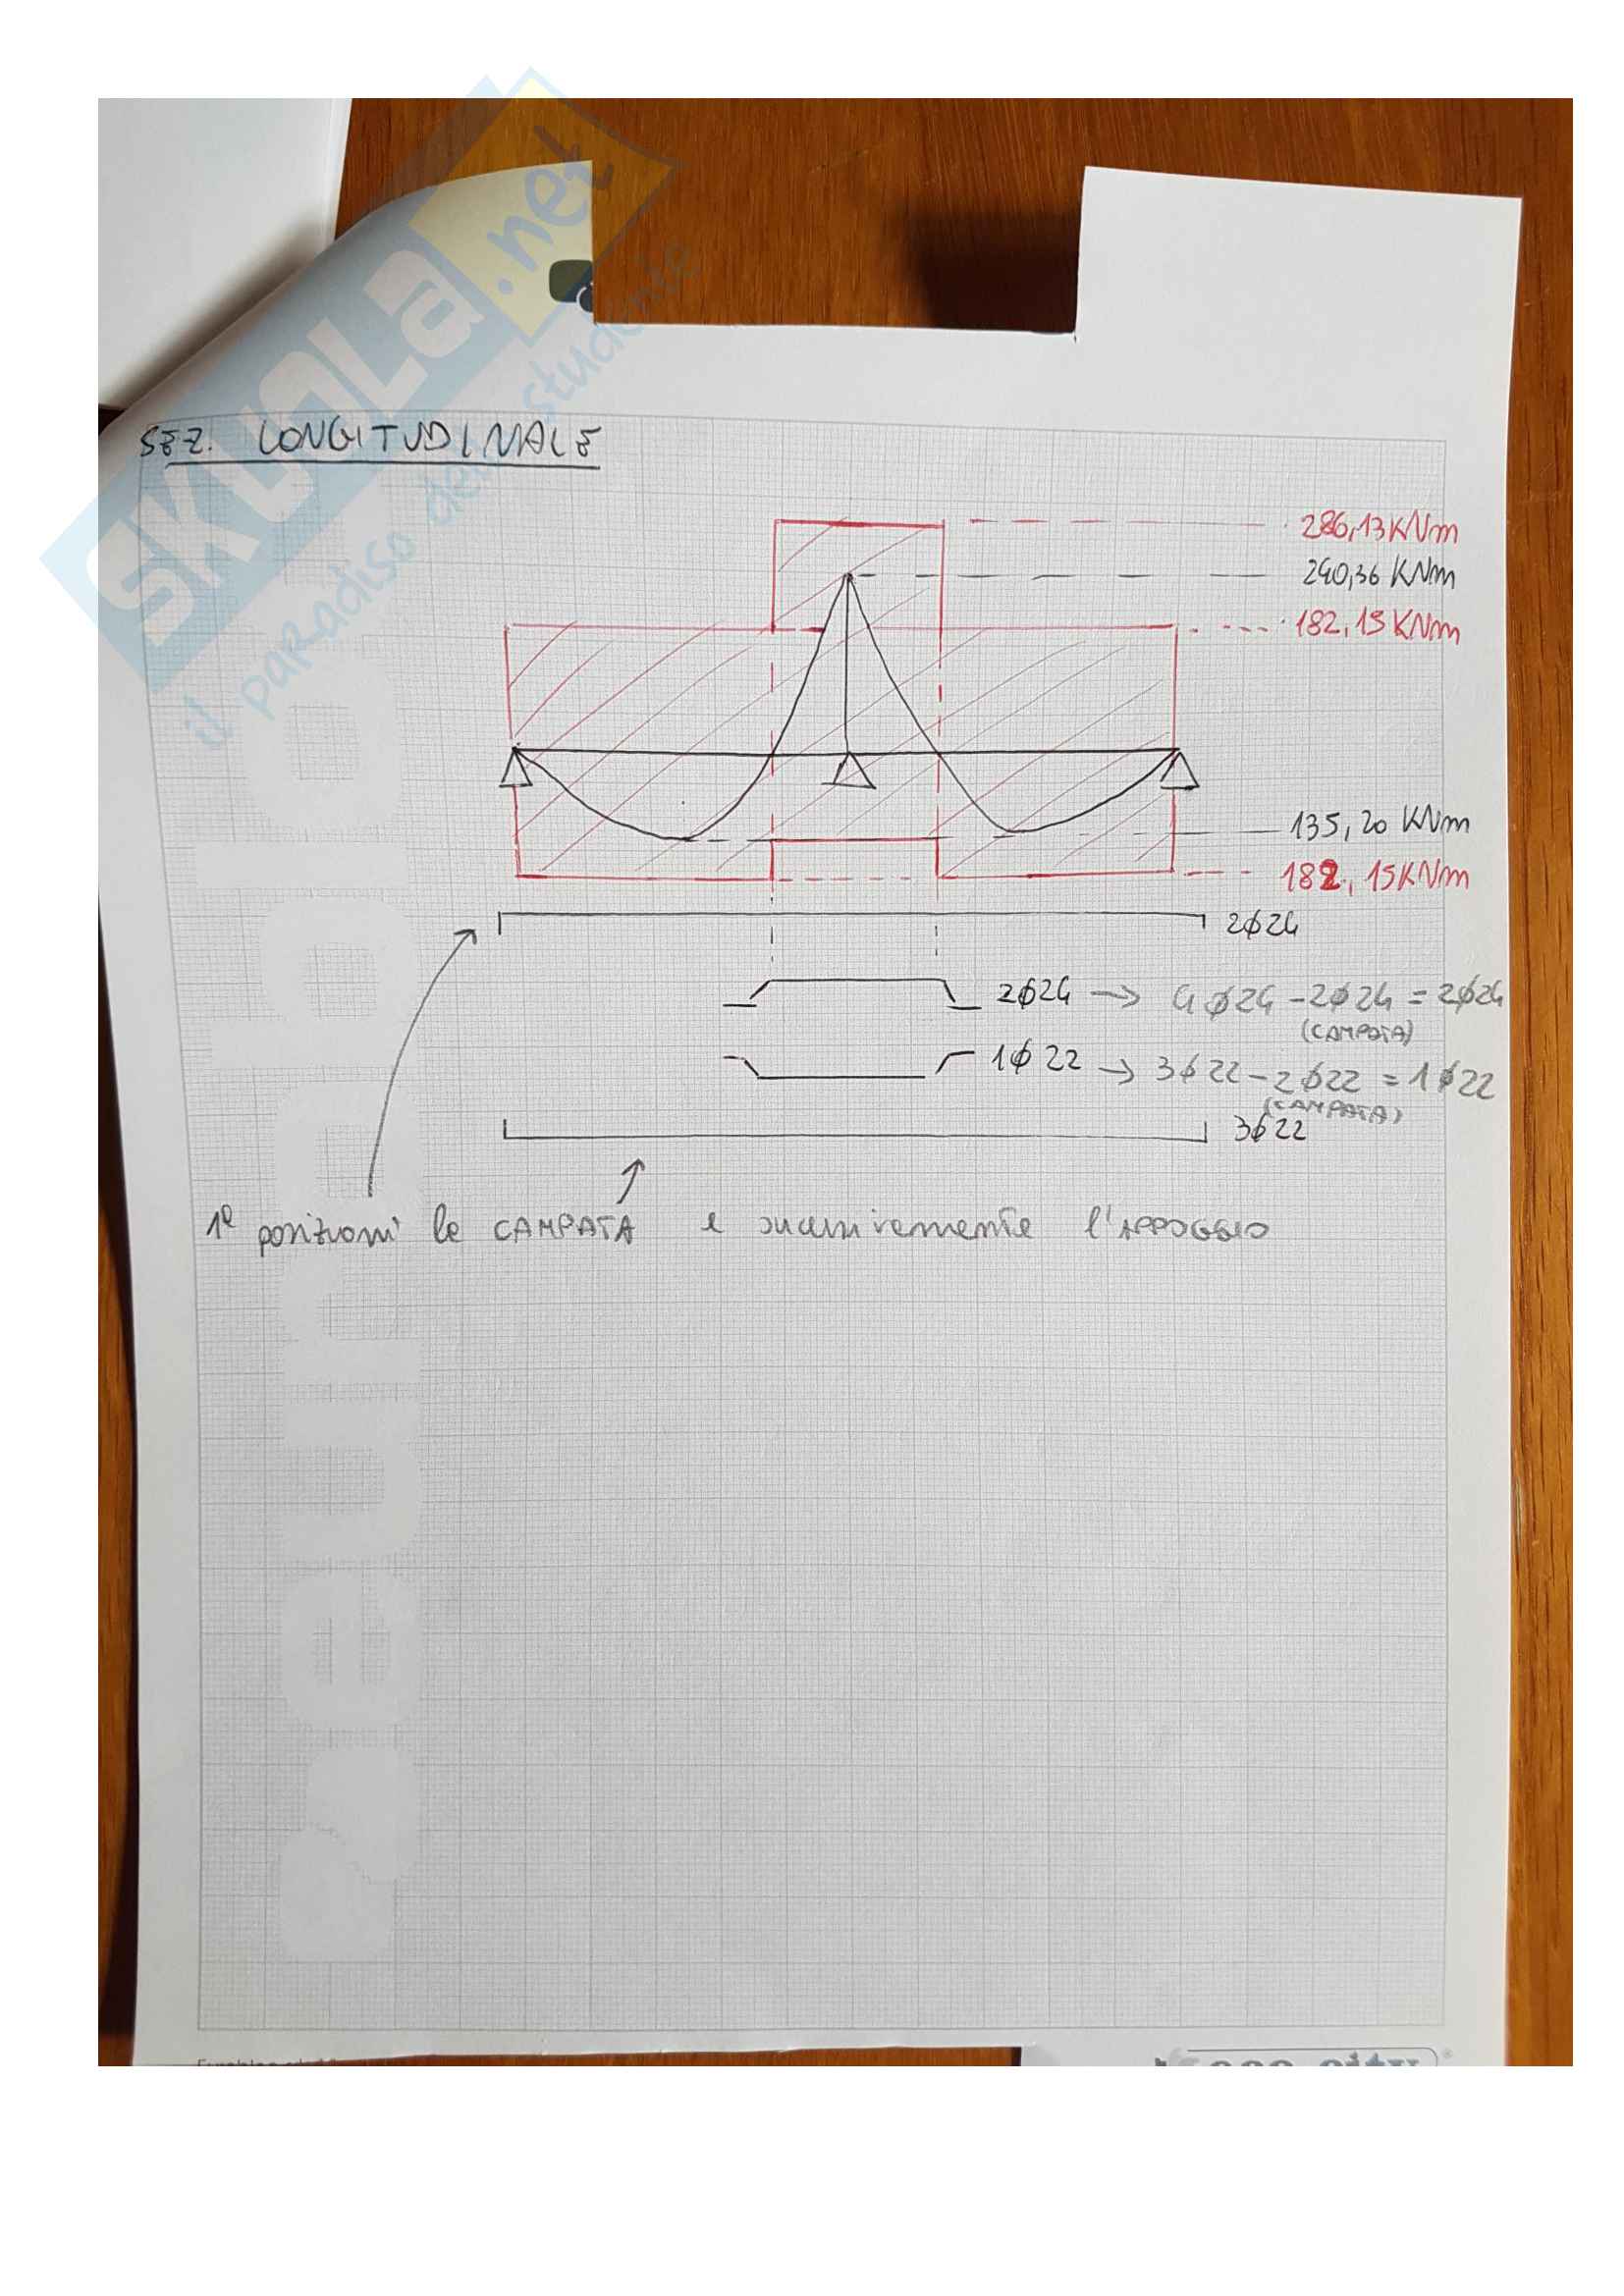 SKUOLa.net
il paradiso dello studente
SEZ. LONGITUDINALE
286,13 KNm
240,36 KNm
182,15 KNm
135,20 KNm
182,15 KNm
2ϕ24
2ϕ24 → 4ϕ24 - 2ϕ24 = 2ϕ24
(CAMPATA)
1ϕ22 → 3ϕ22 - 2ϕ22 = 1ϕ22
(CAMPATA)
3ϕ22
1º posizioni le CAMPATA e successivamente l'APPOGGIO